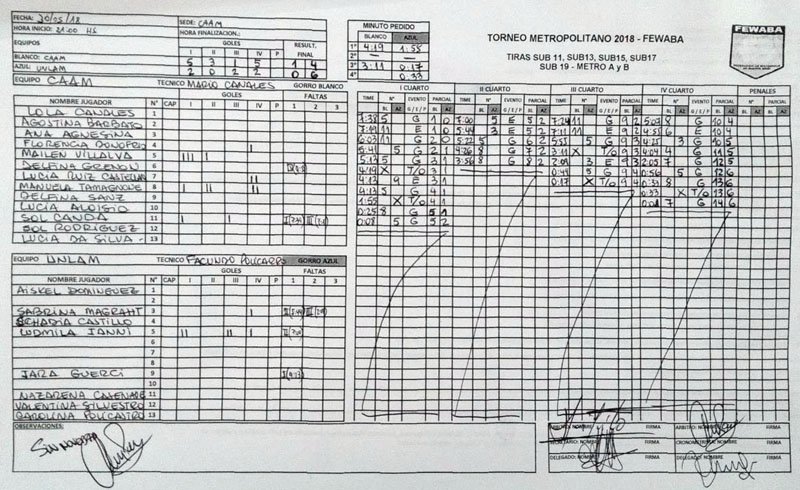 FECHA: 20/05/18
SEDE: CAAM
HORA INICIO: 21:00 HS
HORA FINALIZACION:
EQUIPOS
GOLES
RESULT. FINAL
I II III IV P
BLANCO: CAAM 5 3 1 5 14
AZUL: UNLAM 2 0 2 2 06
MINUTO PEDIDO
BLANCO AZUL
1° 4:19 1:55
2° — —
3° 3:11 0:17
4° 0:33
TORNEO METROPOLITANO 2018 - FEWABA
TIRAS SUB 11, SUB13, SUB15, SUB17
SUB 19 - METRO A y B
FEWABA
EQUIPO CAAM TECNICO MARIO CANALES GORRO BLANCO
NOMBRE JUGADOR N° CAP GOLES FALTAS
I II III IV P 1 2 3
LOLA CANALES 1
AGOSTINA BARBATO 2
ANA AGNESINA 3
FLORENCIA DONOFRIO 4
MAILEN VILLALVA 5
DELFINA GRENONI 6
LUCIA RUIZ 7
MANUELA TAMAGNONE 8
DELFINA SANZ 9
LUCIA ALOISIO 10
SOL CANDA 11
SOL RODRIGUEZ 12
LUCIA DA SILVA - 13
EQUIPO UNLAM TECNICO FACUNDO POLICARPO GORRO AZUL
NOMBRE JUGADOR N° CAP GOLES FALTAS
I II III IV P 1 2 3
AISKEL DOMINGUEZ 1
2
SABRINA MAGRAHT 3
4
LUDMILA IANNI 5
6
7
8
JARA GUERCI 9
10
NAZARENA 11
VALENTINA SILVESTRO 12
CAROLINA POLICASTRO 13
I CUARTO
TIME N° EVENTO PARCIAL
BL AZ G / E / P BL AZ
7:38 5 G 1 0
7:19 11 E 1 0
6:03 11 G 2 0
5:41 5 G 2 1
5:13 5 G 3 1
4:19 X T/O 3 1
4:13 9 E 3 1
4:13 5 G 4 1
1:55 X T/O 4 1
0:25 8 G 5 1
0:08 5 G 5 2
II CUARTO
TIME N° EVENTO PARCIAL
BL AZ G / E / P BL AZ
7:00 5 E 5 2
5:44 3 E 5 2
5:22 5 G 6 2
4:26 8 G 7 2
3:56 8 G 8 2
III CUARTO
TIME N° EVENTO PARCIAL
BL AZ G / E / P BL AZ
7:24 11 G 9 2
7:11 11 E 9 2
5:55 5 G 9 3
3:11 X T/O 9 3
2:09 3 E 9 3
0:49 5 G 9 4
0:17 X T/O 9 4
IV CUARTO
TIME N° EVENTO PARCIAL
BL AZ G / E / P BL AZ
5:03 8 G 10 4
4:55 6 E 10 4
4:25 3 G 10 5
4:04 4 G 11 5
2:03 7 G 12 5
0:56 5 G 12 6
0:39 8 G 13 6
0:33 X T/O 13 6
0:01 7 G 14 6
PENALES
N° PARCIAL
BL AZ BL AZ
OBSERVACIONES:
SIN NOVEDAD
ARBITRO: NOMBRE FIRMA ARBITRO: NOMBRE FIRMA
SECRETARIO: NOMBRE FIRMA CRONOMETRISTA: NOMBRE FIRMA
DELEGADO: NOMBRE FIRMA DELEGADO: NOMBRE FIRMA